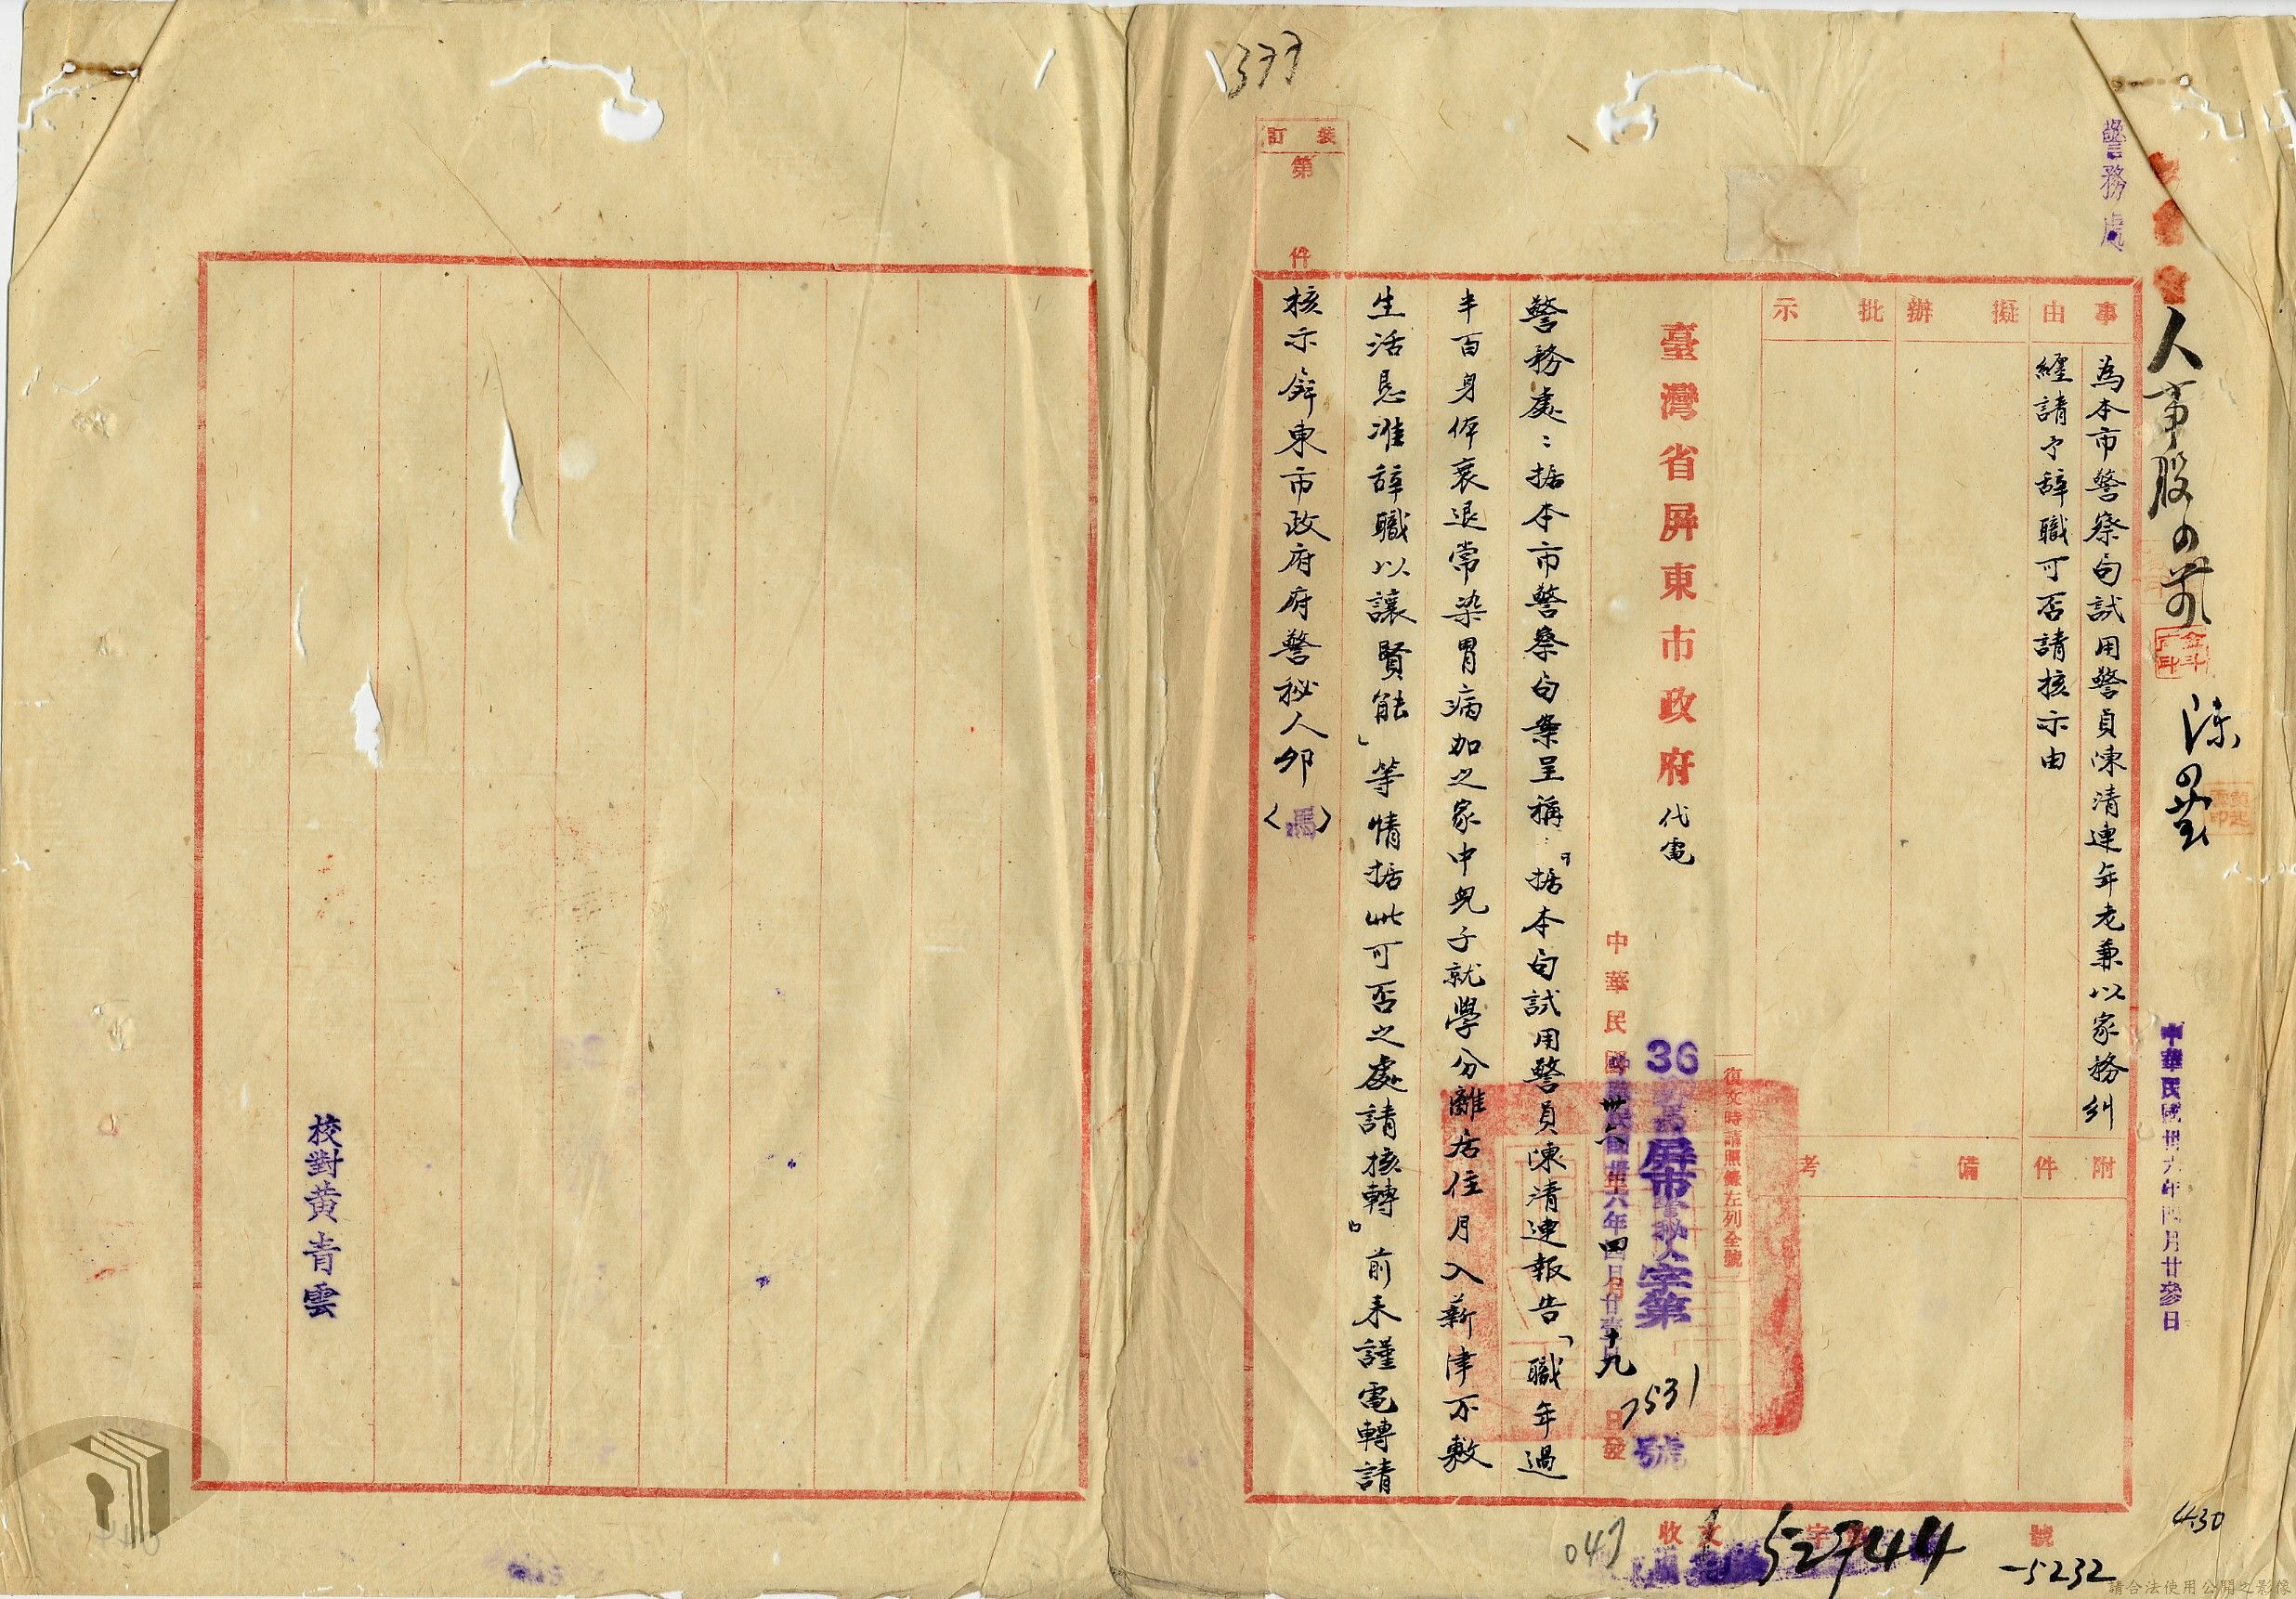 警務處
人事股
四.30
中華民國卅六年四月廿參日
事由
為本市警察局試用警員陳清連年老兼以家務糾
纏請予辞職可否請核示由
附件
擬辦
批示
備考
復文時請照錄左列全號
臺灣省屏東市政府代電
36
屏市警秘人字第
7531
號
中華民國卅六年四月十九日發
中華民國卅六年四月廿壹日
警務處：据本市警察局案呈稱：『据本局試用警員陳清連報告「職年過
半百身体衰退常染胃病加之家中兒子就學分離居住月入薪津不敷
生活恳准辞職以讓賢能」等情据此可否之處請核轉』前来謹電轉請
核示屏東市政府府警秘人卯（馬）
裝訂
第
件
1377
收文
字
52744
號
-5232
047
校對黃青雲
請合法使用公開之影像